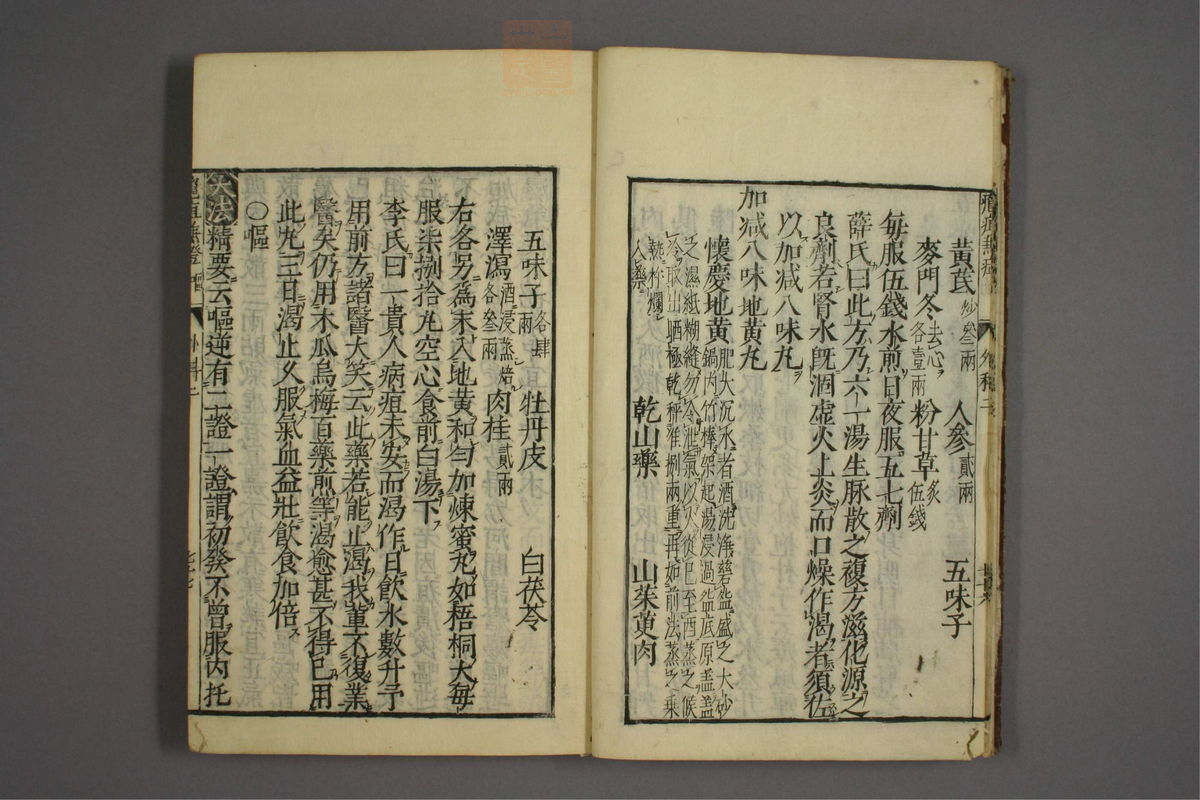 黃芪炒叄兩 人參貳兩 五味子
麥門冬去心各壹兩 粉甘草炙伍錢
每服伍錢水煎日夜服五七劑
薛氏曰此方乃六一湯生脉散之複方滋化源之
良劑若腎水旣涸虚火上炎而口燥作渴者須佐
以加减八味丸
加减八味地黃丸
懷慶地黃肥大沉水者酒洗淨磁盆盛之大砂
鍋内竹棒架起湯浸過盆底原盖盖
之濕紙糊縫勿令泄氣以火從巳至酉蒸之候
冷取出晒極乾秤准捌兩重再如前法蒸之乗
熱杵爛入藥
乾山藥 山茱萸肉
五味子各肆兩 牡丹皮 白茯苓
澤瀉酒浸蒸焙各叄兩 肉桂貳兩
右各另爲末入地黃和匀加煉蜜丸如梧桐大每
服柒捌拾丸空心食前白湯下
李氏曰一貴人病疽未安而渴作日飲水數升予
用前方諸醫大笑云此藥若能止渴我輩不復業
醫矣仍用木瓜烏梅百藥煎等渴愈甚不得已用
此丸三日渴止久服氣血益壯飲食加倍
〇嘔
精要云嘔逆有二證一證謂初發不曾服内托